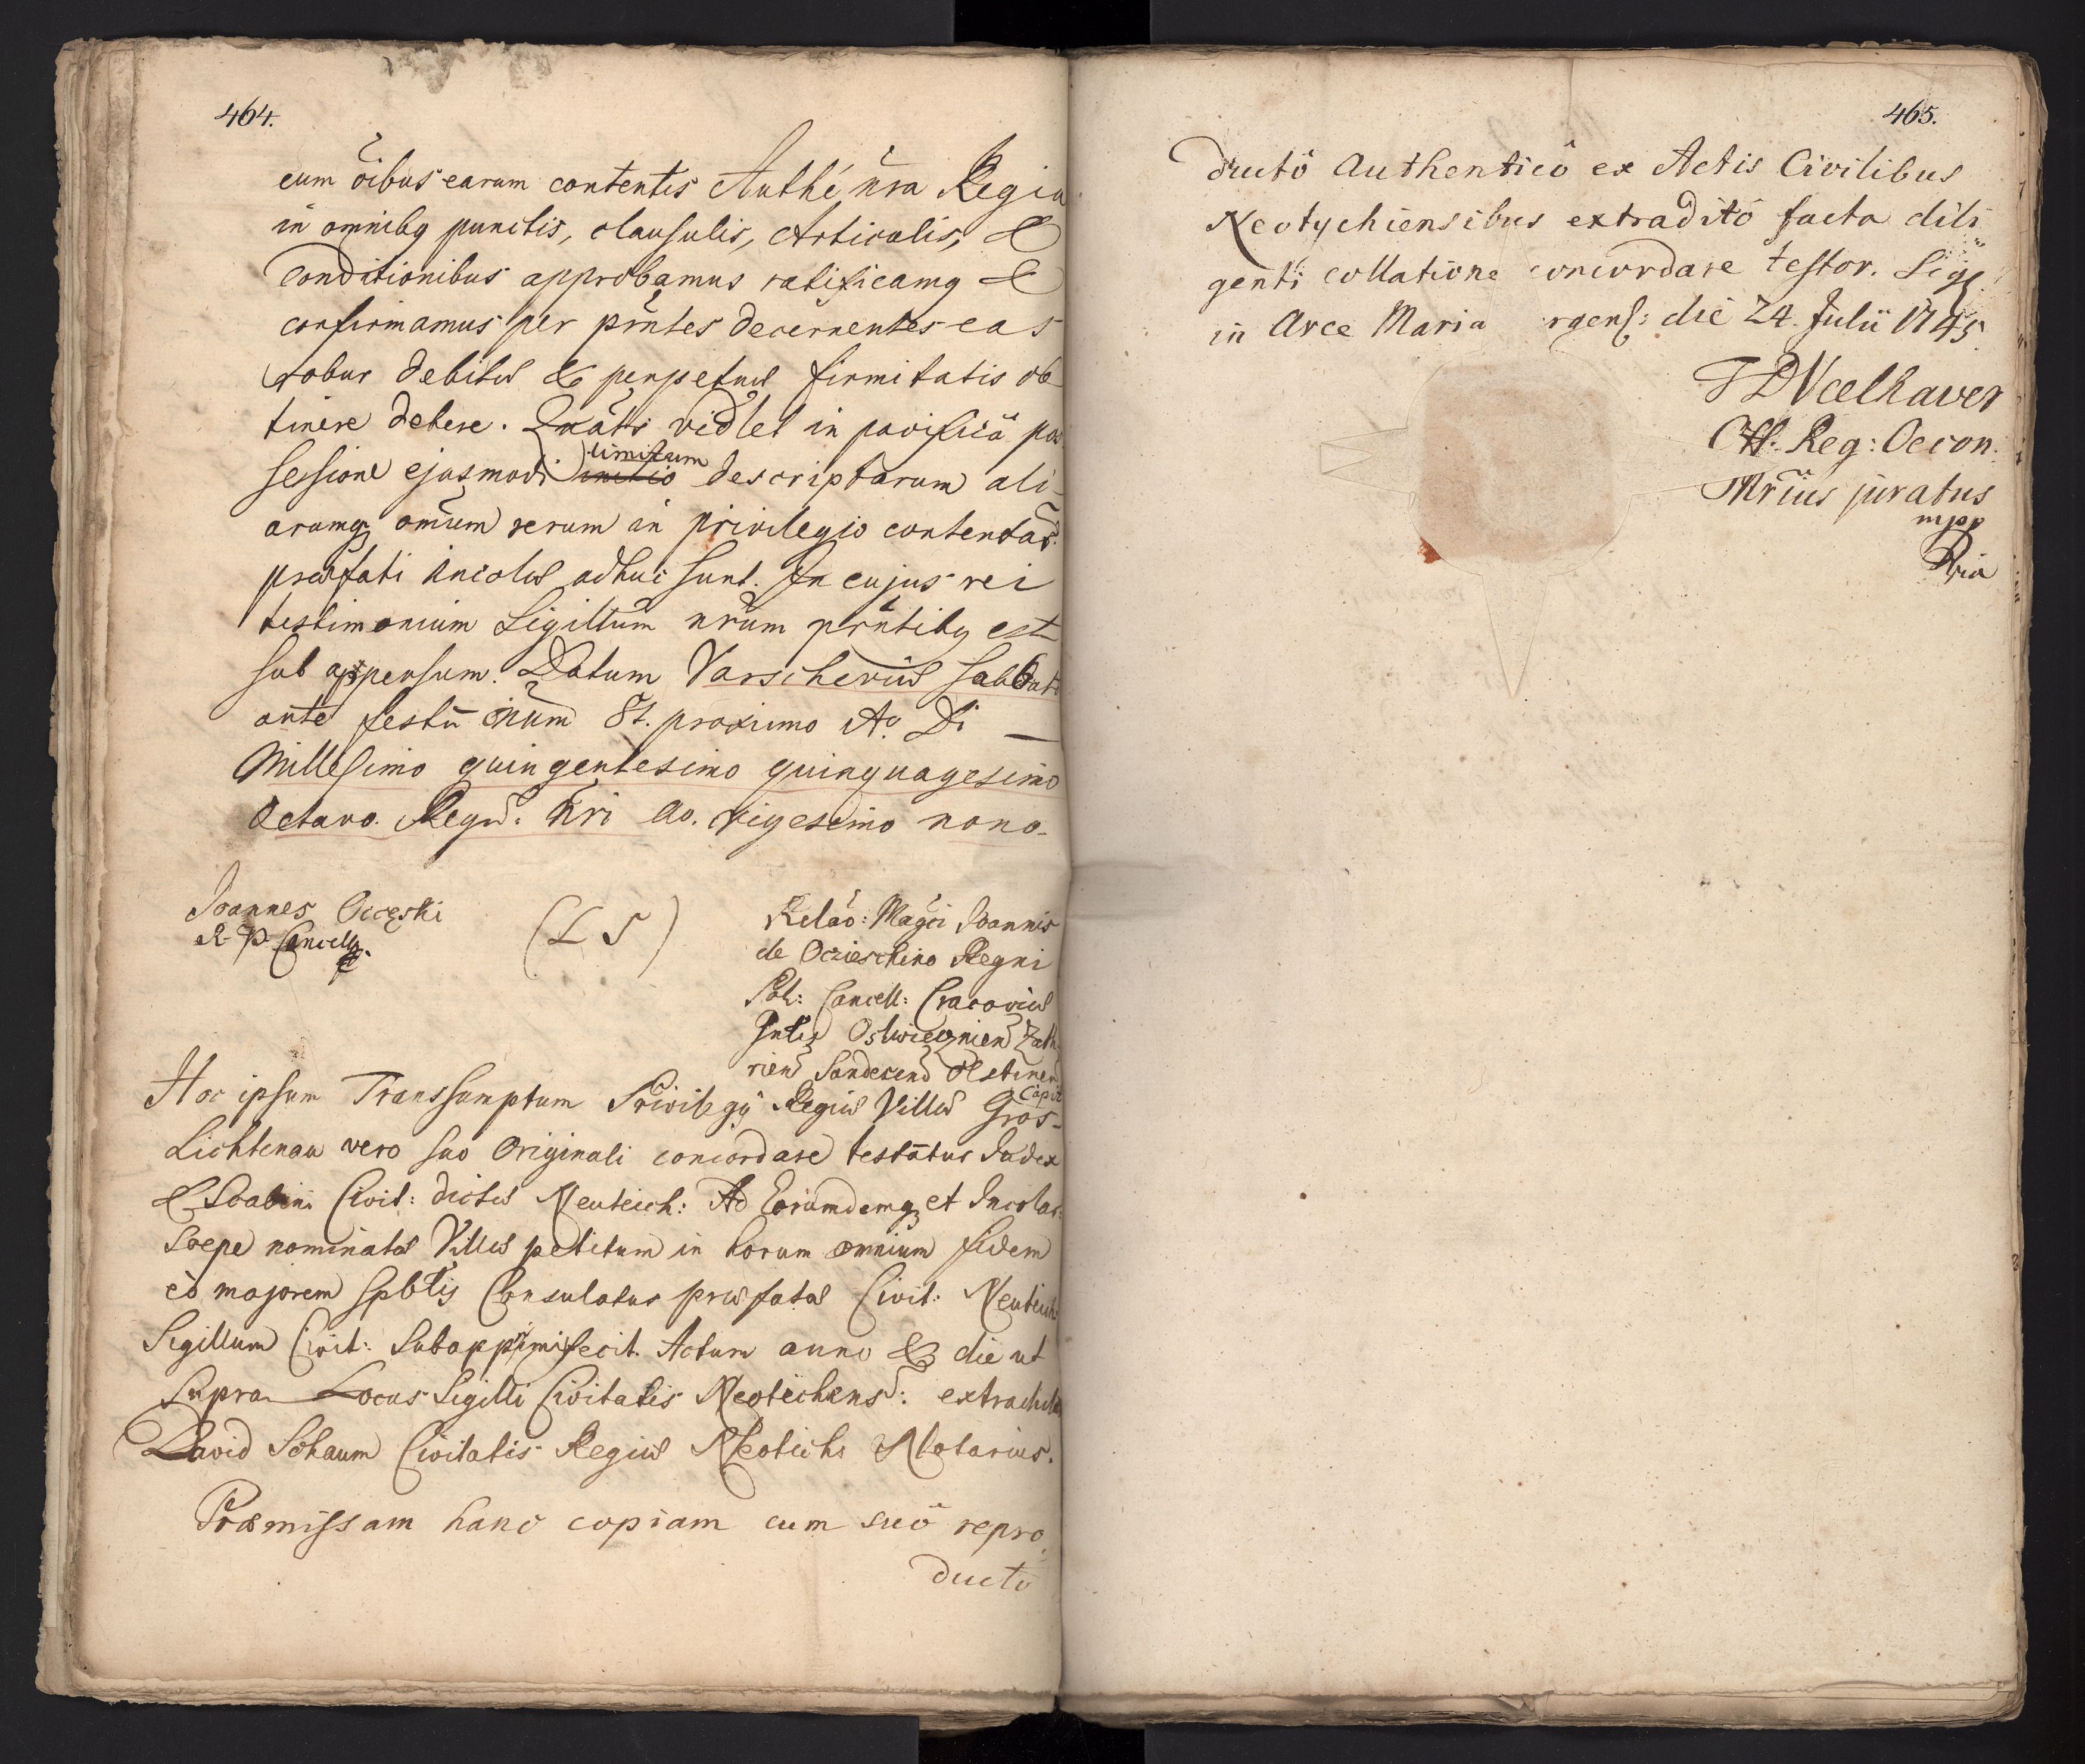 464.
cum ōibus earum contentis Authē nrā Regia
in omnibq punctis, clausulis, Articulis, &
Conditionibus approbamus ratificamq &
confirmamus per prn̄tes decernentes eas
robur debitæ & perpetuæ firmitatis ob
tinere debere. Quāts vidlet in pacificâ pos
sessione ejusmodi limitum descriptarum ali-
arumq omīum rerum in privilegio contentar:
præfati Incolæ adhuc sunt. In cujus rei
testimonium Sigillum nrūm prn̄tibq est
sub appensum. Datum Varscheviæ Sabbato
ante festū oīum St. proximo Aō Di
Millesimo quingentesimo quinquagesimo
Octavo. Regn: Nri ao. vigesimo nono.
Joannes Ocieski
R. P. Cancell.
(L S)
Relaō: Magci Joannis
de Oczieschino Regni
Pol: Cancell: Cracoviæ
Gnlis Oswiecznien Zath
rien Sandecen Olstinen
Capit
Hoc ipsum Transsumptum Privilegij Regiæ Villæ Gros-
Lichtenau vero suo Originali concordare testātur Judex
& Scabini Civit: dictæ Neuteich: Ad Eorumdemq et Incolar:
Sæpe nominatæ Villæ petitum in horum omnium fidem
eò majorem Spbtis Consulatus præfatæ Civit: Neuteich:
Sigillum Civit: Subapprimi fecit. Actum anno & die ut
Supra Locus Sigilli Civitatis Neoteichens: extradidit
David Schaum Civitatis Regiæ Neotichs Notarius.
Præmissam hanc copiam cum suô repro
ducto
465.
ductô Authenticô ex Actis Civilibus
Neotychiensibus extraditô facta dili
genti collatione concordare testor. Sig:
in Arce Maria rgens: die 24. Julii 1745
Off. Reg: Oecon:
Mrius juratus
mpp